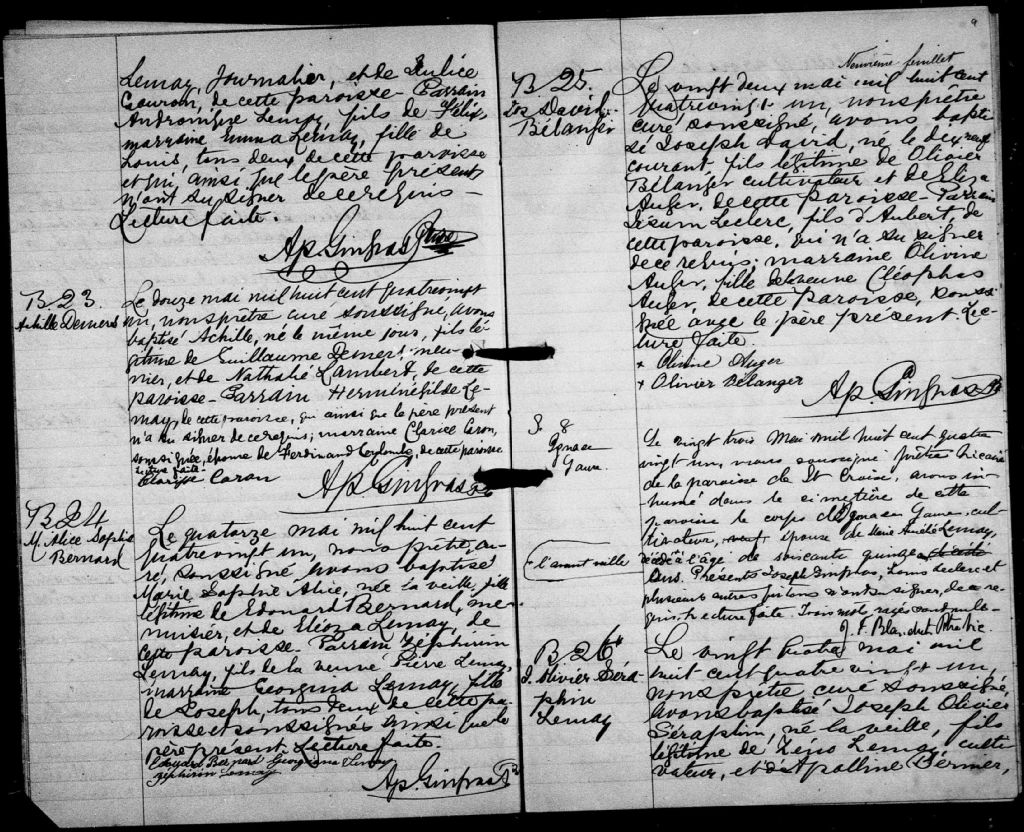 Lemay, Journalier, et de Eulice
de cette paroisse - Parrain
Lemay, fils de Félix
marraine Emma Lemay, fille de
Louis, tous deux de cette paroisse
et qui ainsi que le père présent
n'ont su signer de ce requis -
Lecture faite.
Ap. Gingras Ptre
B 23.
Achille Demers
Le douze mai mil huit cent quatrevingt
un, nous prêtre curé soussigné, avons
baptisé Achille, né le même jour, fils lé-
gitime de Guillaume Demers, meu-
nier, et de Nathalie Lambert, de cette
paroisse - Parrain Herménégilde Le-
may, de cette paroisse, qui ainsi que le père présent
n'a su signer de ce requis; marraine Clarice Caron,
soussignée, épouse de Ferdinand de cette paroisse
Lecture faite -
Caron
Ap. Gingras Ptre
B 24
M. Alice Sophie
Bernard
Le quatorze mai mil huit cent
quatrevingt un, nous prêtre, cu-
ré, soussigné avons baptisé
Marie Sophie Alice, née la veille, fille
légitime de Edouard Bernard, me-
nuisier, et de Eliza Lemay, de
cette paroisse - Parrain Zéphirin
Lemay, fils de la veuve Pierre Lemay,
marraine Georgina Lemay, fille
de Joseph, tous deux de cette pa-
roisse soussignés ainsi que le
père présent. Lecture faite.
Edouard Bernard Georgiana Lemay
Zéphirin Lemay
Ap. Gingras Ptre
9
Neuvième feuillet
B 25.
Jos David
Bélanger
Le vingt deux mai mil huit cent
quatrevingt un, nous prêtre
curé soussigné, avons bapti-
sé Joseph David, né le dix neuf
courant, fils légitime de Olivier
Bélanger cultivateur et de Eliza
Auger, de cette paroisse - Parrain
Leclerc, fils d'Aubert, de
cette paroisse, qui n'a su signer
de ce requis; marraine Olivine
Auger, fille de Cléophas
Auger, de cette paroisse, sous-
signée avec le père présent. Lec-
ture faite.
+ Olivine Auger
+ Olivier Bélanger
Ap. Gingras Ptre
S. 8
Ignace
Le vingt trois Mai mil huit cent quatre
vingt un, nous soussigné prêtre vicaire
de la paroisse de St Croix, avons in-
humé dans le cimetière de cette
paroisse le corps de Ignace cul-
tivateur, époux de Marie Lemay,
décédé à l'âge de soixante quinze
ans. Présents Joseph Gingras, Louis Leclerc et
plusieurs autres qui tous n'ont su signer, de ce re-
quis, lecture faite. Trois mots rayés sont nuls -
Blanchet Ptre Vic.
+ l'avant veille
B 26
J. Olivier Séra-
phin
Lemay
Le vingt quatre mai mil
huit cent quatre vingt un,
nous prêtre curé soussigné,
avons baptisé Joseph Olivier
Séraphin, né la veille, fils
légitime de Lemay, culti-
vateur, et de Apolline Bernier,